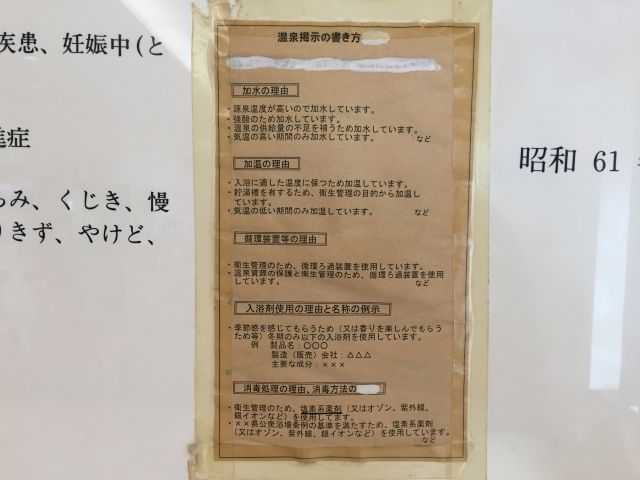 疾患、妊娠中(と
進症
み、くじき、慢
りきず、やけど、
温泉掲示の書き方
加水の理由
・源泉温度が高いので加水しています。
・強酸のため加水しています。
・温泉の供給量の不足を補うため加水しています。
・気温の高い期間のみ加水しています。 など
加温の理由
・入浴に適した温度に保つため加温しています。
・貯湯槽を有するため、衛生管理の目的から加温し
ています。
・気温の低い期間のみ加温しています。 など
循環装置等の理由
・衛生管理のため、循環ろ過装置を使用しています。
・温泉資源の保護と衛生管理のため、循環ろ過装置を使用
しています。 など
入浴剤使用の理由と名称の例示
・季節感を感じてもらうため（又は香りを楽しんでもらう
ため等）冬期のみ以下の入浴剤を使用しています。
例 製品名：○○○
製造（販売）会社：△△△
主要な成分：×××
消毒処理の理由、消毒方法の
・衛生管理のため、塩素系薬剤（又はオゾン、紫外線、
銀イオンなど）を使用してます。
・××県公衆浴場条例の基準を満たすため、塩素系薬剤
（又はオゾン、紫外線、銀イオンなど）を使用しています。
など
昭和 61